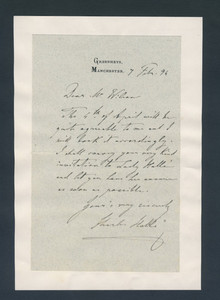 Greenheys,
Manchester. 7 Feb. 92
Dear Mr Wilson
The 6th of April will be
quite agreeable to me and I
will book it accordingly.
I shall convey your kind
invitation to Lady Hallé
and let you have her answer
as soon as possible.
Yours very sincerely
Charles Hallé